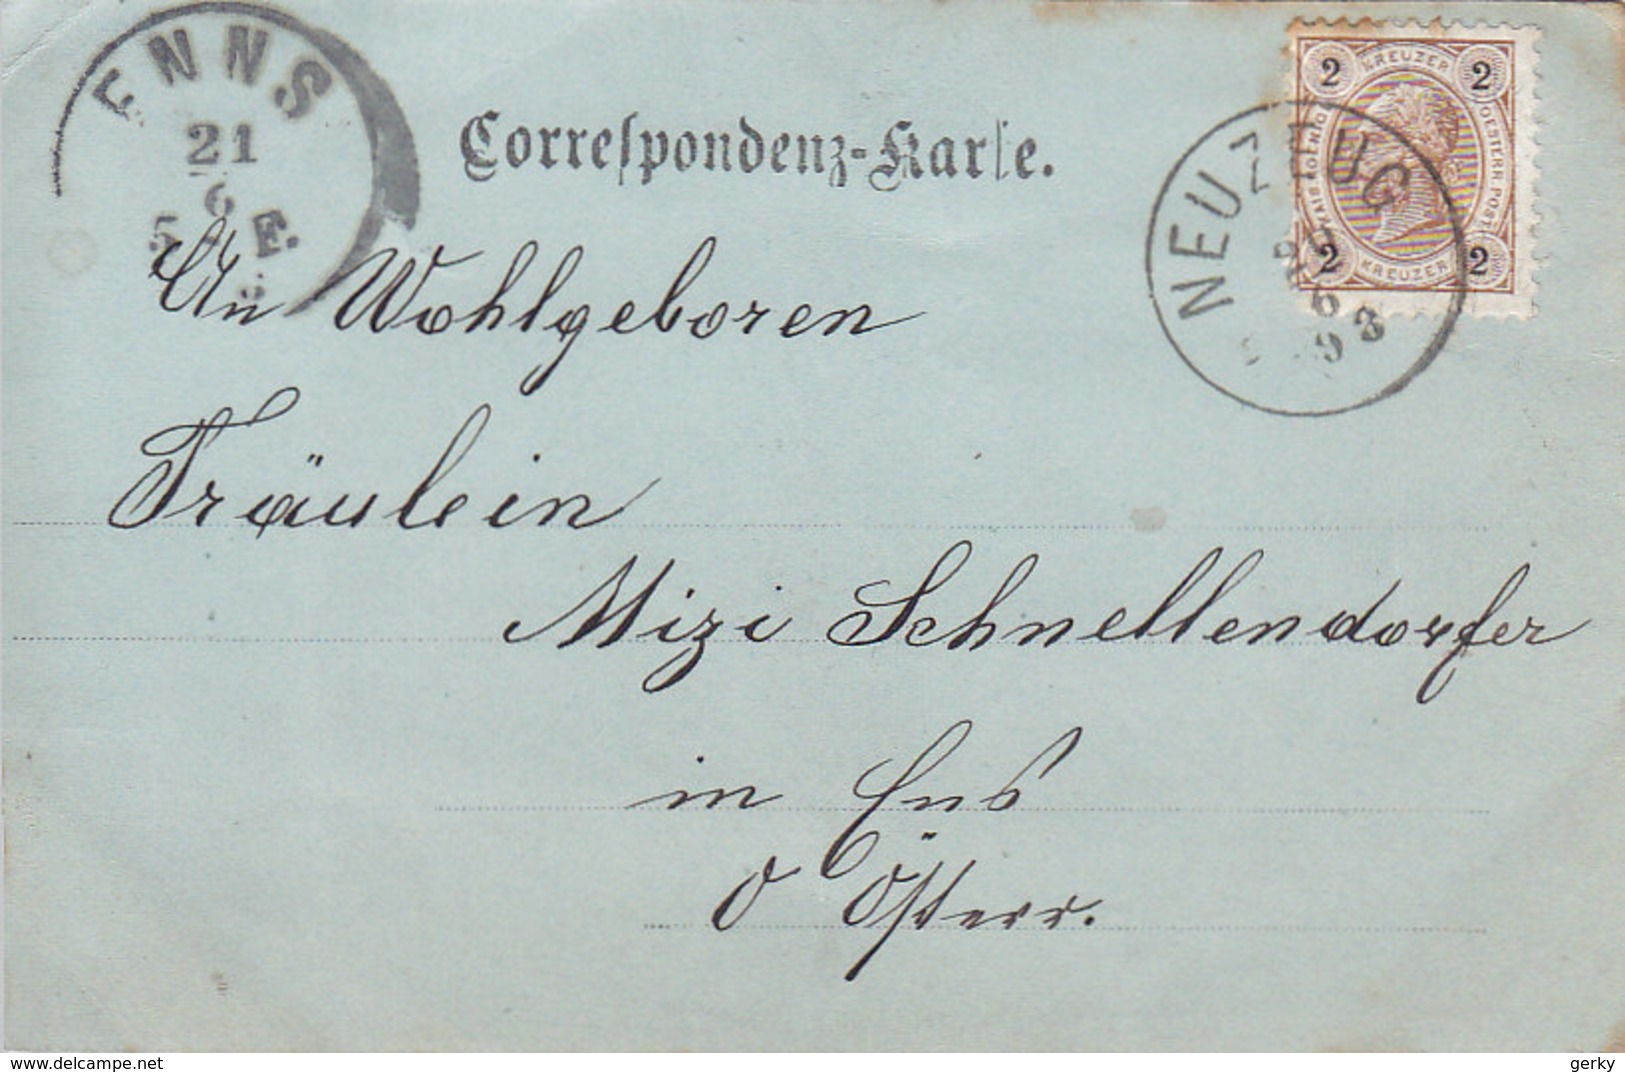 ENNS
21
6
5 E.
Correspondenz-Karte.
2 KREUZER 2
KAIS. KOENIGL. OESTERR. POST
2 KREUZER 2
NEUZEUG
20
6
98
An Wohlgeboren
Fräulein
Mizi Schnellendorfer
in Ens
O Österr.
delcampe.net
gerky